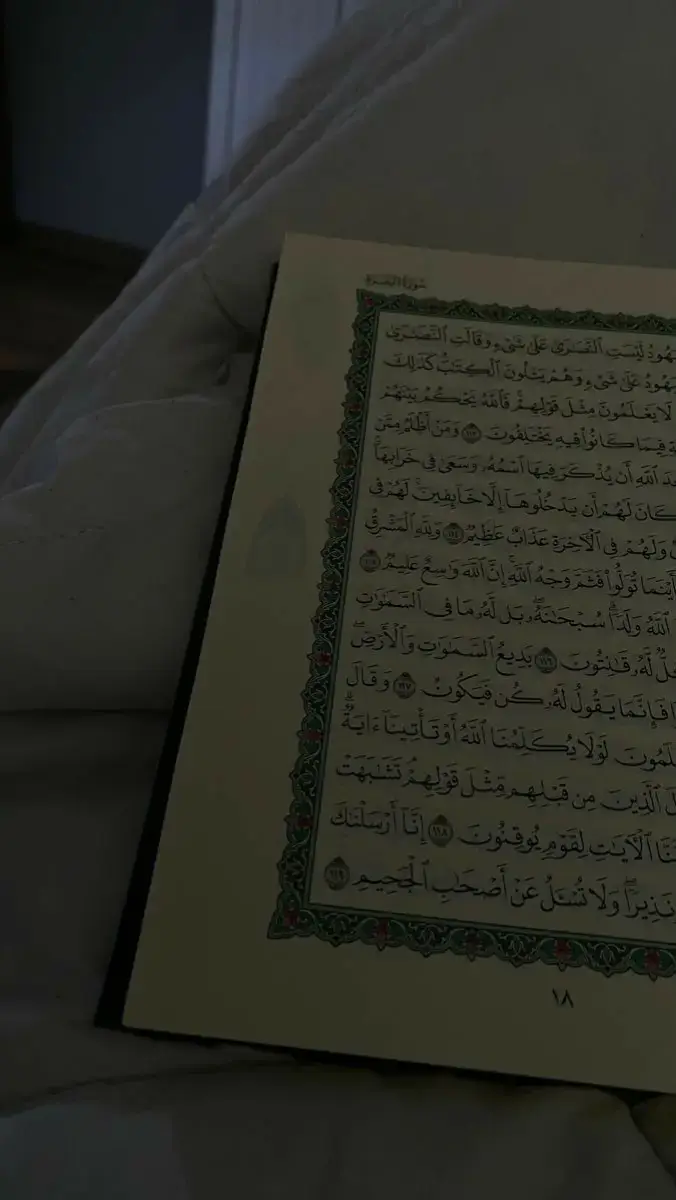 سُورَةُ البَقَرَةِ
لَيْسَتِ ٱلنَّصَـٰرَىٰ عَلَىٰ شَىْءٍ وَقَالَتِ ٱلنَّصَـٰرَىٰ
عَلَىٰ شَىْءٍ وَهُمْ يَتْلُونَ ٱلْكِتَـٰبَۗ كَذَٰلِكَ
لَا يَعْلَمُونَ مِثْلَ قَوْلِهِمْۚ فَٱللَّهُ يَحْكُمُ بَيْنَهُمْ
فِيمَا كَانُوا۟ فِيهِ يَخْتَلِفُونَ ١١٣ وَمَنْ أَظْلَمُ مِمَّن
ٱللَّهِ أَن يُذْكَرَ فِيهَا ٱسْمُهُۥ وَسَعَىٰ فِى خَرَابِهَآۚ
كَانَ لَهُمْ أَن يَدْخُلُوهَآ إِلَّا خَآئِفِينَۚ لَهُمْ فِى
وَلَهُمْ فِى ٱلْـَٔاخِرَةِ عَذَابٌ عَظِيمٌ ١١٤ وَلِلَّهِ ٱلْمَشْرِقُ
فَأَيْنَمَا تُوَلُّوا۟ فَثَمَّ وَجْهُ ٱللَّهِۚ إِنَّ ٱللَّهَ وَٰسِعٌ عَلِيمٌ ١١٥
ٱللَّهُ وَلَدًاۗ سُبْحَـٰنَهُۥۖ بَل لَّهُۥ مَا فِى ٱلسَّمَـٰوَٰتِ
لَّهُۥ قَـٰنِتُونَ ١١٦ بَدِيعُ ٱلسَّمَـٰوَٰتِ وَٱلْأَرْضِۖ
فَإِنَّمَا يَقُولُ لَهُۥ كُن فَيَكُونُ ١١٧ وَقَالَ
لَوْلَا يُكَلِّمُنَا ٱللَّهُ أَوْ تَأْتِينَآ ءَايَةٌۗ
ٱلَّذِينَ مِن قَبْلِهِم مِّثْلَ قَوْلِهِمْۘ تَشَـٰبَهَتْ
ٱلْـَٔايَـٰتِ لِقَوْمٍ يُوقِنُونَ ١١٨ إِنَّآ أَرْسَلْنَـٰكَ
وَنَذِيرًاۖ وَلَا تُسْـَٔلُ عَنْ أَصْحَـٰبِ ٱلْجَحِيمِ ١١٩
١٨